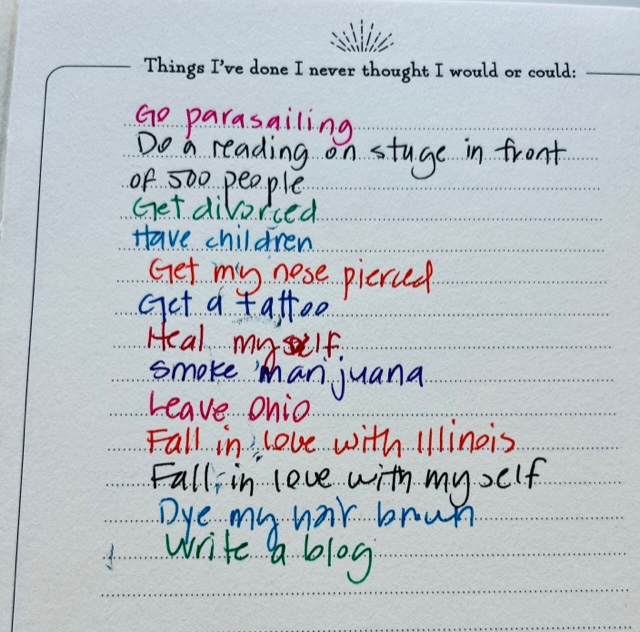 Things I've done I never thought I would or could:
Go parasailing
Do a reading on stage in front
of 500 people
Get divorced
Have children
Get my nose pierced
Get a tattoo
Heal myself
Smoke marijuana
Leave Ohio
Fall in love with Illinois
Fall in love with myself
Dye my hair brown
Write a blog